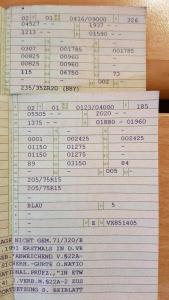 02 01 0416/09000 326
04527 - 1937 -
1213 - - 01590 - -
- - -
0307 001785 001785
00825 00960 -
00825 00960 -
115 06750 73
- - 002 -
235/35ZR20 (88Y)
02 01 0123/04000 185
05505 - - 2020 - -
1375 - - 01880 - 01960
- - -
0001 002425 002425
01150 01275 -
01150 01275 -
89 03150 84
- - 005 -
205/75R15
205/75R15
- -
BLAU 5
- -
E VX851405
NICHT GEM.71/320/E
1991 ERSTMALS IN D.VE
ABWEICHEND V.§22A-
SICHERH.-GURTE O.NATIO
NATIONAL.PRÜFZ.,"IN ETW
VERB.M.§22A-2 ZUS
BEIBLATT